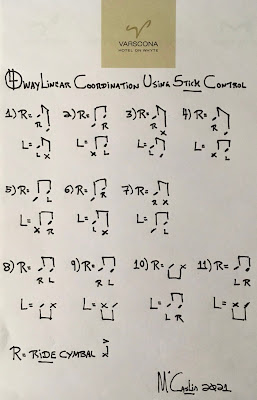 VARSCONA
HOTEL ON WHYTE
4 WAY LINEAR COORDINATION USING STICK CONTROL
1) R= R 2) R= R 3) R= X 4) R= X
L= L X L= X L L= L L=  L
5) R= 6) R= 7) R=
L= X R L= R X L=
8) R= R L 9) R= R L 10) R= X 11) R= L R
L= X L= X L= L R L= X
R= RIDE CYMBAL
McCaslin 2021